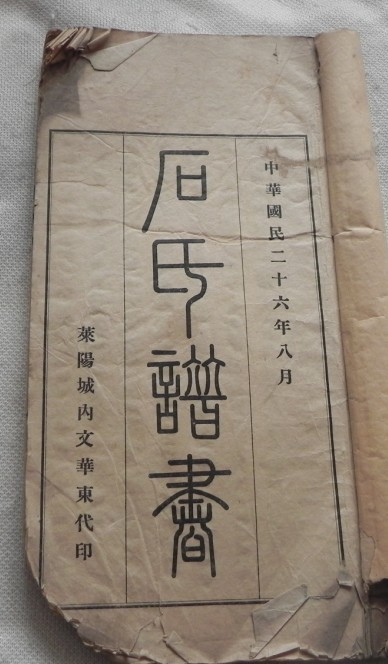 中華國民二十六年八月
石氏譜書
萊陽城內文華東代印